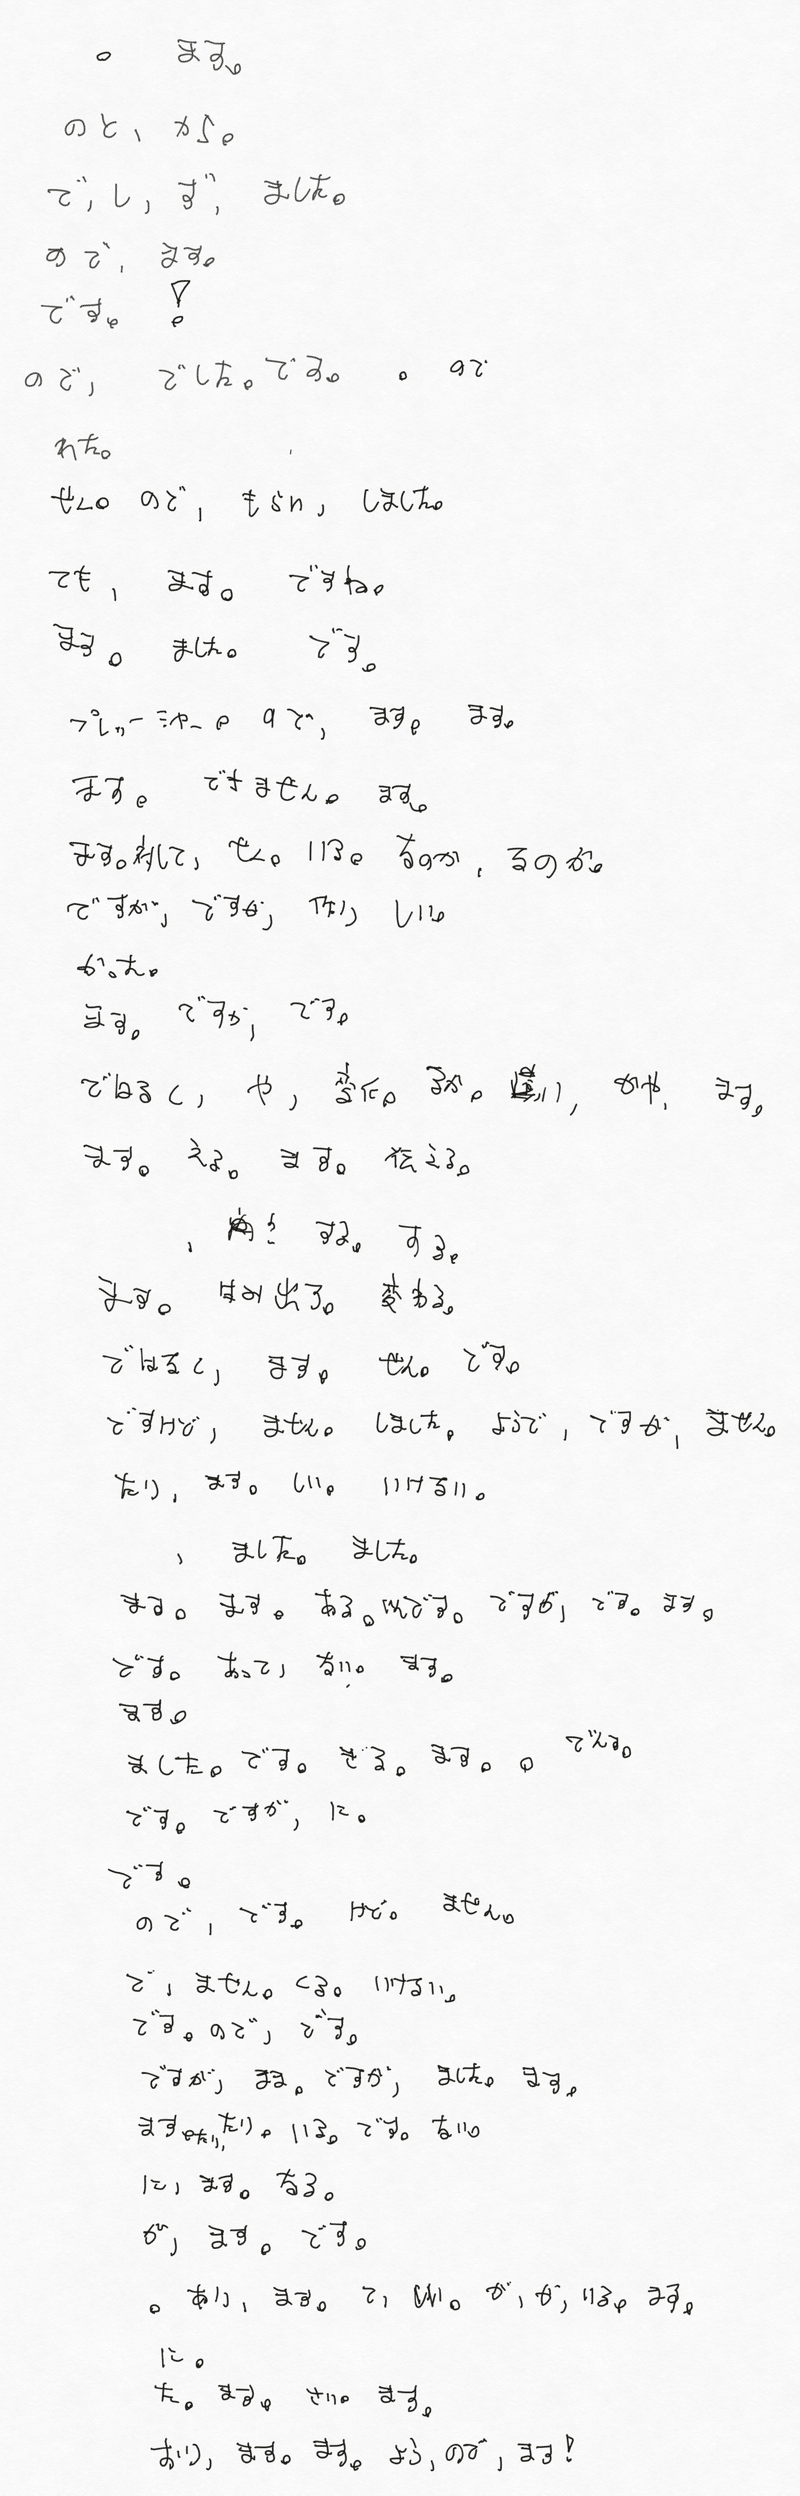 。 ます。
のと、から。
で、し、ず、ました。
ので、ます。
です。！
ので、でした。です。。ので
れた。
せん。ので、もらい、しました。
ても、ます。ですね。
ます。ました。です。
プレッシャー。ので、ます。ます。
ます。できません。ます。
ます。対して、せん。いる。るのか、るのか。
ですが、ですが、作り、しい。
かった。
ます。ですが、です。
ではなく、や、るか。かや、ます。
ます。える。ます。伝える。
、する。する。
ます。はみ出る。変わる。
ではなく、ます。せん。です。
ですけど、ません。しました。ようで、ですが、ません。
たり、ます。しい。いけない。
、ました。ました。
ます。ます。ある。です。ですが、です。ます。
です。あって、ない。ます。
ます。
ました。です。ぎる。ます。。でんる。
です。ですが、に。
です。
ので、です。けど。ません。
で、ません。くる。いけない。
です。ので、です。
ですが、まま。ですが、ました。ます。
ます。たり、たり。いる。です。ない。
に、ます。なる。
が、ます。です。
。あり、ます。て、が、が、いる。ます。
に。
た。ます。さい。ます。
おり、ます。ます。よう、ので、ます！